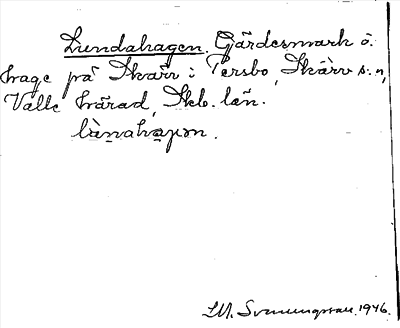 Lundahagen. Gärdesmark o.
hage på Skärv i Persbo, Skärvs:n,
Valle härad, Skb. län.
lànahaɡən.
LM. Svenungsson. 1946.